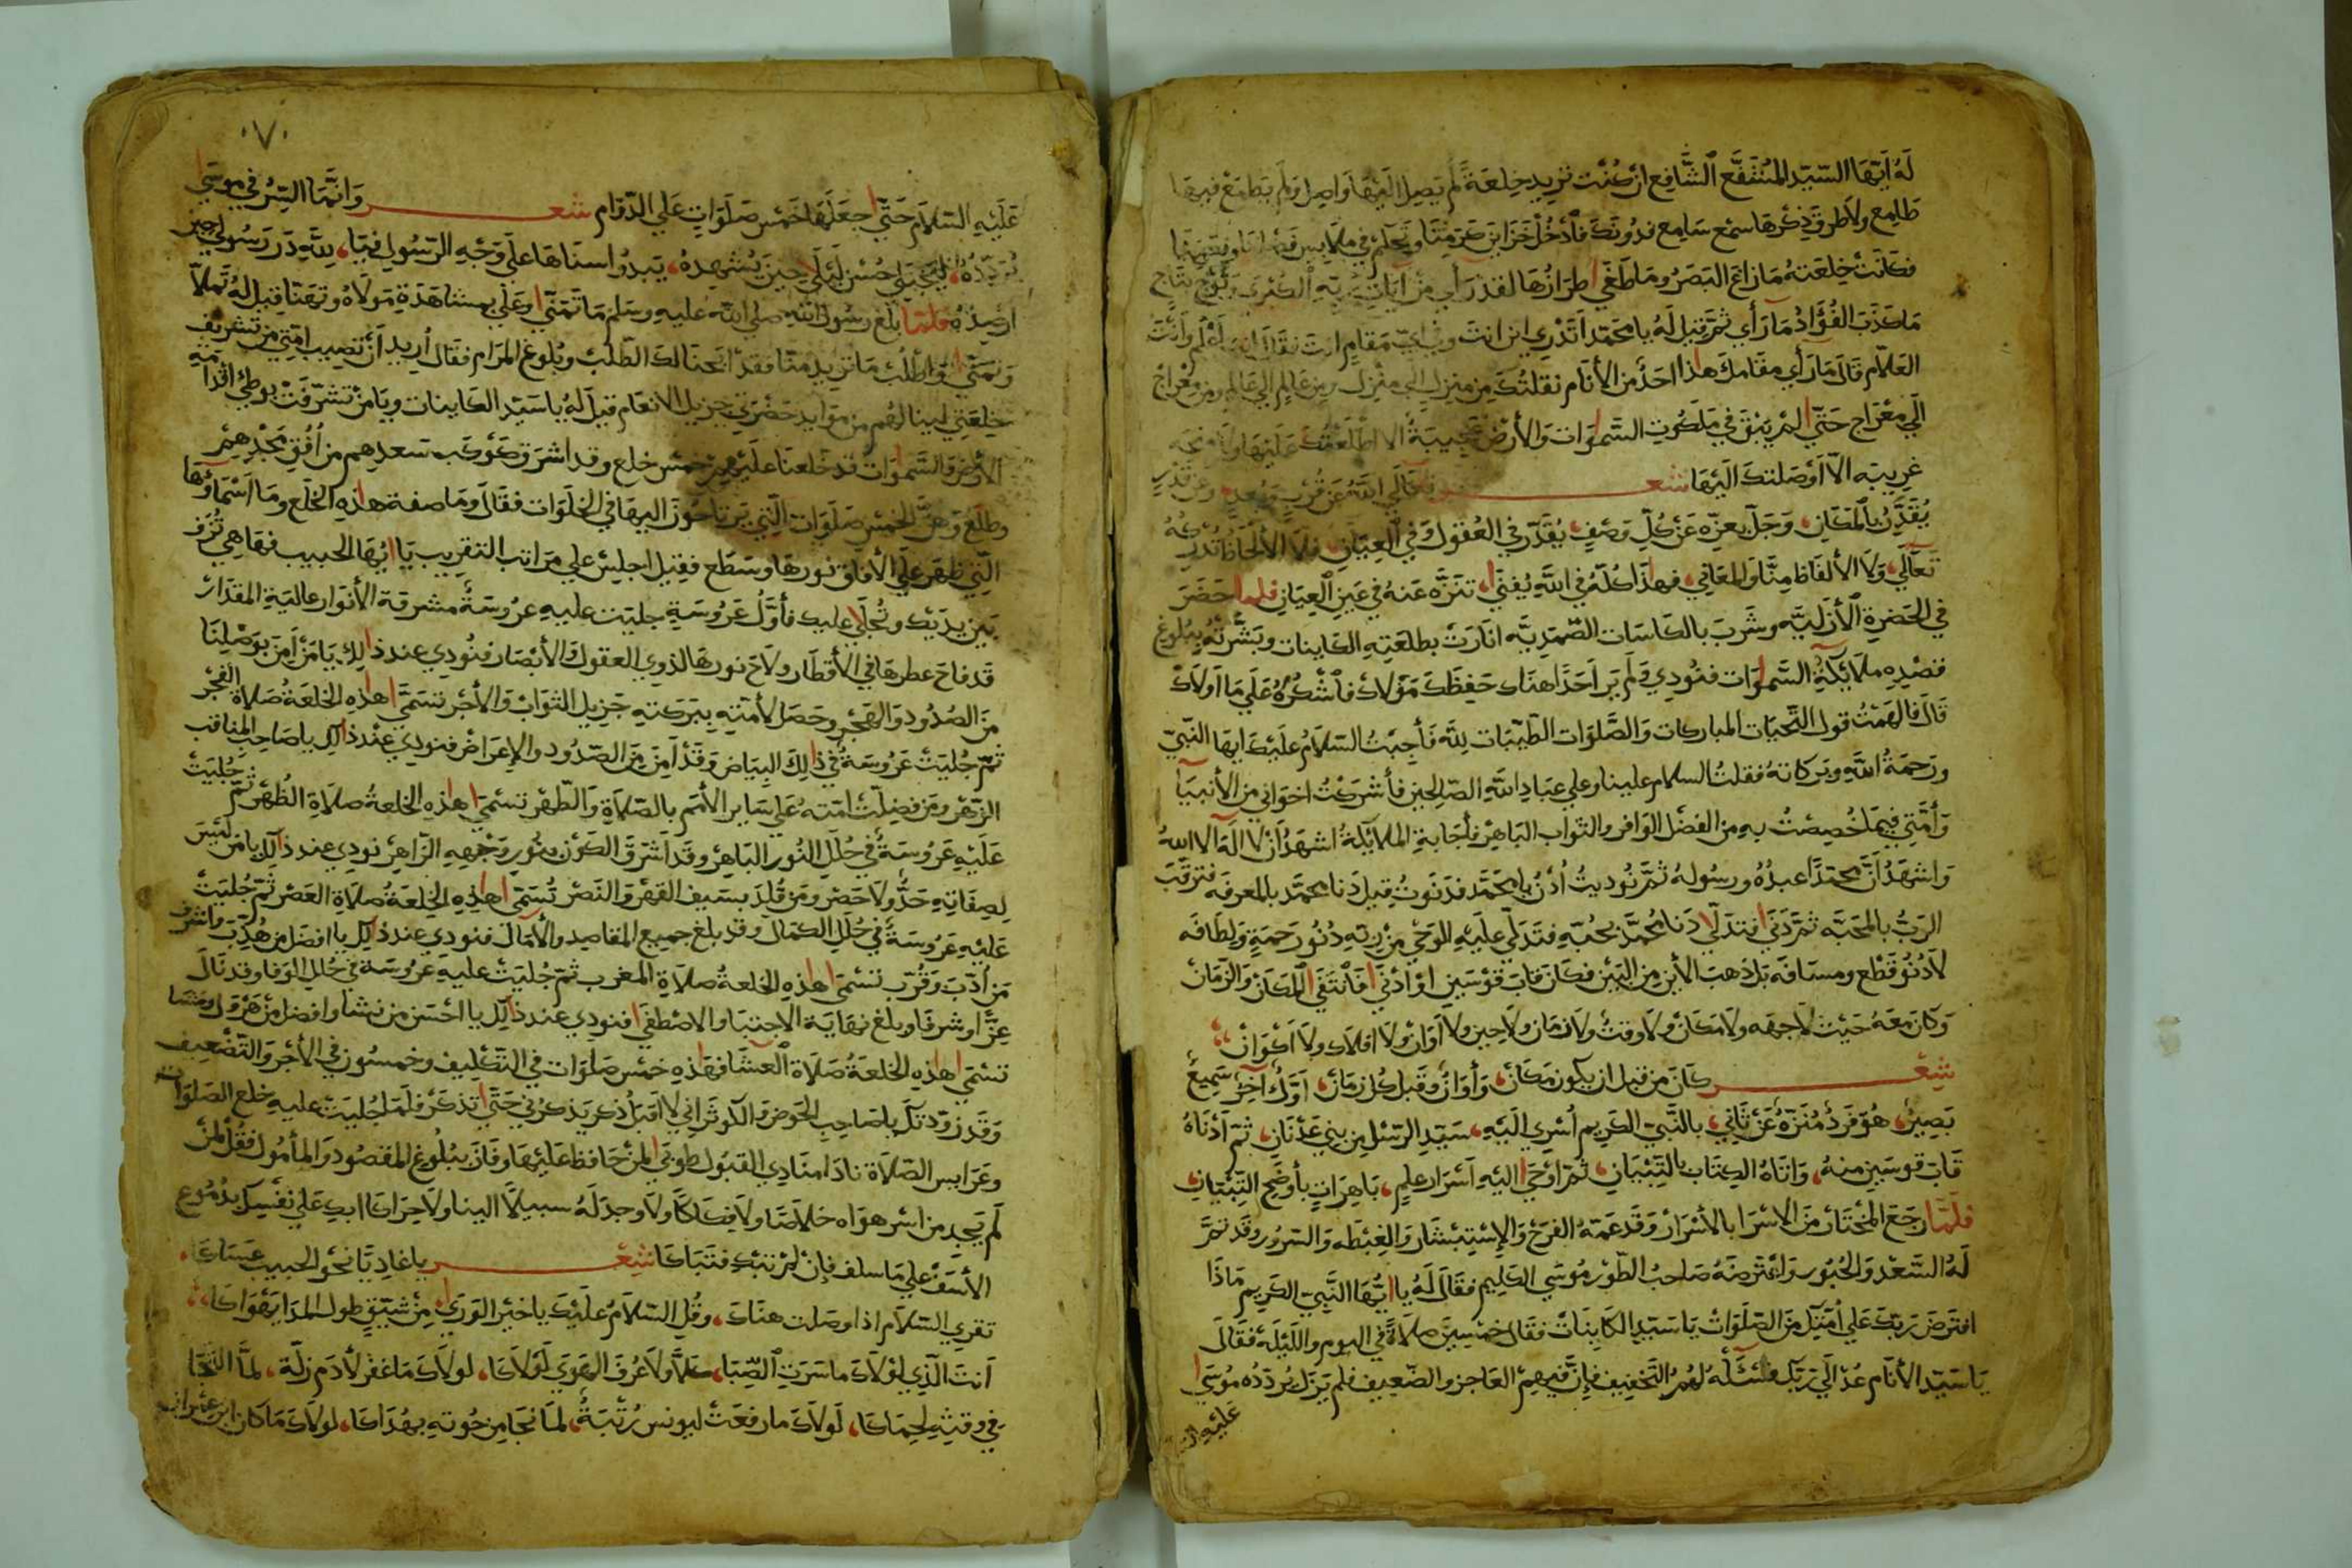 له ايها السيد المشفع الشافع ان كنت تريد خلعة لم يصل اليها واصل ولم يطمع فيها
طامع ولا طرق ذكرها سمع سامع فدونك فادخل خزاين كرمنا وتحكم في ملابس فضلنا
فكانت خلعته ما زاغ البصر وما طغى طرازها لقد رأى من آيات ربه الكبرى وتوج بتاج
ما كذب الفؤاد ما رأى ثم قيل له يا محمد اتدري اين انت وفي اي مقام انت فقال اعلم وانت
العلام قال ما رأى مقامك هذا احد من الأنام نقلتك من منزل الى منزل ومن عالم الى عالم ومن معراج
الى معراج حتى لم يبق في ملكوت السموات والأرض عجيبة الا اطلعتك عليها ولا
غريبه الا اوصلتك اليها شعر تعالى الله عن قرب وبعد وعن قدر
يقدر بالمكان، وجل بعزه عن كل وصف، يقدر في العقول وفي العيان، فلا الألحاظ تدركه
تعالى، ولا الألفاظ منا والمعاني، فهذا كله في الله يفنى، تنزه عنه في عين العيان فلما حضر
في الحضرة الأزلية وشرب بالكاسات الصمدية انارت بطلعته الكاينات وبشرته ببلوغ
قصده ملائكة السموات فنودي ولم ير احدا هناك حفظك مولاك فاشكره على ما اولاك
قال فالهمت قول التحيات المباركات والصلوات الطيبات لله فأجبت السلام عليك ايها النبي
ورحمة الله وبركاته فقلت السلام علينا وعلى عباد الله الصالحين فأشركت اخواني من الأنبيآ
وأمتي فيما خصصت به من الفضل الوافر والثواب الباهر فأجابة الملائكة اشهد أن لا اله الا الله
واشهد أن محمدا عبده ورسوله ثم نوديت أدن يا محمد فدنوت قيل دنا محمد بالمعرفه فتقرب
الرب بالمحبه ثم دنى فتدلى دنا محمد بحبه فتدلى عليه الوحي من ربه دنو رحمة ولطافه
لا دنو قطع ومسافه بل ذهب الأين من البين فكان قاب قوسين او ادنى فانتفى المكان والزمان
وكان معه حيث لا جهه ولا مكان ولا وقت ولا زمان ولا حين ولا آوان ولا افلاك ولا اكوان
شعر كان من قبل ان يكون مكان، وأوان وقبل كل زمان، اول آخر سميع
بصير، هو فرد منزه عن ثاني، بالنبي الكريم أسري اليه، سيد الرسل من بني عدنان، ثم أدناه
قاب قوسين منه، واتاه الكتاب بالتبيان، ثم اوحى اليه أسرار علم، باهرات بأوضح التبيان
فلما رجع المختار من الاسرا بالأسرار وقد عمه الفرح والإستبشار والغبطه والسرور وقد تم
له السعد والحبور واعترضه صاحب الطور موسى الكليم فقال له يا ايها النبي الكريم ماذا
افترض ربك على أمتك من الصلوات يا سيد الكاينات فقال خمسين صلاة في اليوم والليلة فقال
يا سيد الأنام عد الى ربك فسئله لهم التخفيف فإن فيهم العاجز والضعيف فلم يزل يردده موسى
عليه
٧٠
عليه السلام حتى جعلها خمس صلوات على الدوام شعر وانما السر في موسى
يردده، ليجتلي حسن ليلى حين يشهده، يبدوا سناها على وجه الرسول فيا، لله در رسول حين
ارصده فلما بلغ رسول الله صلى الله عليه وسلم ما تمنى وعلى بمشاهدة مولاه وتهنا قيل له تملا
وتمنى واطلب ما تريد منا فقد ابحنا لك الطلب وبلوغ المرام فقال اريد أن نصيب امتي من تشريف
خلعتي لينالهم من موايد حضرتي جزيل الانعام قيل له يا سيد الكاينات ويا من تشرفت بوطئ اقدامه
الأرض والسموات قد خلعنا عليهم خمس خلع وقد اشرق كوكب سعدهم من أفق مجدهم
وطلع وهن الخمس صلوات التي يرتاحون اليها في الخلوات فقال وما صفة هذه الخلع وما اسماؤها
التي ظهر على الأفاق نورها وسطع فقيل اجلس على مراتب التقريب يا ايها الحبيب فها هي تزف
بين يديك وتجلى عليك فأول عروسة جليت عليه عروسة مشرقة الأنوار عالية المقدار
قد فاح عطرها في الأقطار ولاح نورها لذوي العقول والأبصار فنودي عند ذلك يا من أمن بوصلنا
من الصدود والهجر وحصل لأمته ببركته جزيل الثواب والأجر تسمى هذه الخلعة صلاة الفجر
ثم جليت عروسة في ذلك البياض وقد أمن من الصدود والإعراض فنودي عند ذلك يا صاحب المناقب
الزهر ومن فضلت امته على ساير الأمم بالصلاة والطهر تسمى هذه الخلعة صلاة الظهر ثم جليت
عليه عروسة في حلل النور الباهر وقد اشرق الكون بنور وجهه الزاهر نودي عند ذلك يا من ليس
لصفاته حد ولا حصر ومن قلد بسيف القهر والنصر تسمى هذه الخلعة صلاة العصر ثم جليت
عليه عروسة في حلل الكمال وقد بلغ جميع المقاصد والآمال فنودي عند ذلك يا افضل من هذب واشرف
من أدب وقرب تسمى هذه الخلعة صلاة المغرب ثم جليت عليه عروسة في حلل الوفا وقد نال
عزا وشرفا وبلغ نهاية الاجتبا والاصطفى فنودي عند ذلك يا احسن من نشا وافضل من هرول ومشا
تسمى هذه الخلعة صلاة العشا فهذه خمس صلوات في التكليف وخمسون في الأجر والتضعيف
وقد زودتك يا صاحب الحوض والكوثر اني لا اقبل ذكر يذكرني حتى تذكر فلما جليت عليه خلع الصلوات
وعرايس الصلاة نادا منادي القبول طوبى لمن حافظ عليها وفاز ببلوغ المقصود والمأمول فقل لمن
لم يجد من اسر هواه خلاصا ولا فكاكا ولا وجد له سبيلا الينا ولا حراكا ابك على نفسك بدموع
الأسف على ما سلف فإن لم تبك فتباكا شعر يا غاديا نحو الحبيب عساكا،
تقري السلام اذا وصلت هناك، وقل السلام عليك يا خير الورى، من شيق طول المدا يهواكا،
أنت الذي لولاك ما سرت الصبا، كلا ولا عرف الهوى لولاكا، لولاك ما غفر لأدم زلة، لما التجا
في وقته لحماكا، لولاك ما رفعت ليونس رتبة، لما نجا من حوته بهداكا، لولاك ما كان ابن عمران